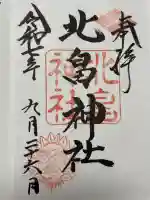 奉拝
北畠神社
北畠神社
令和六年
九月二十六日